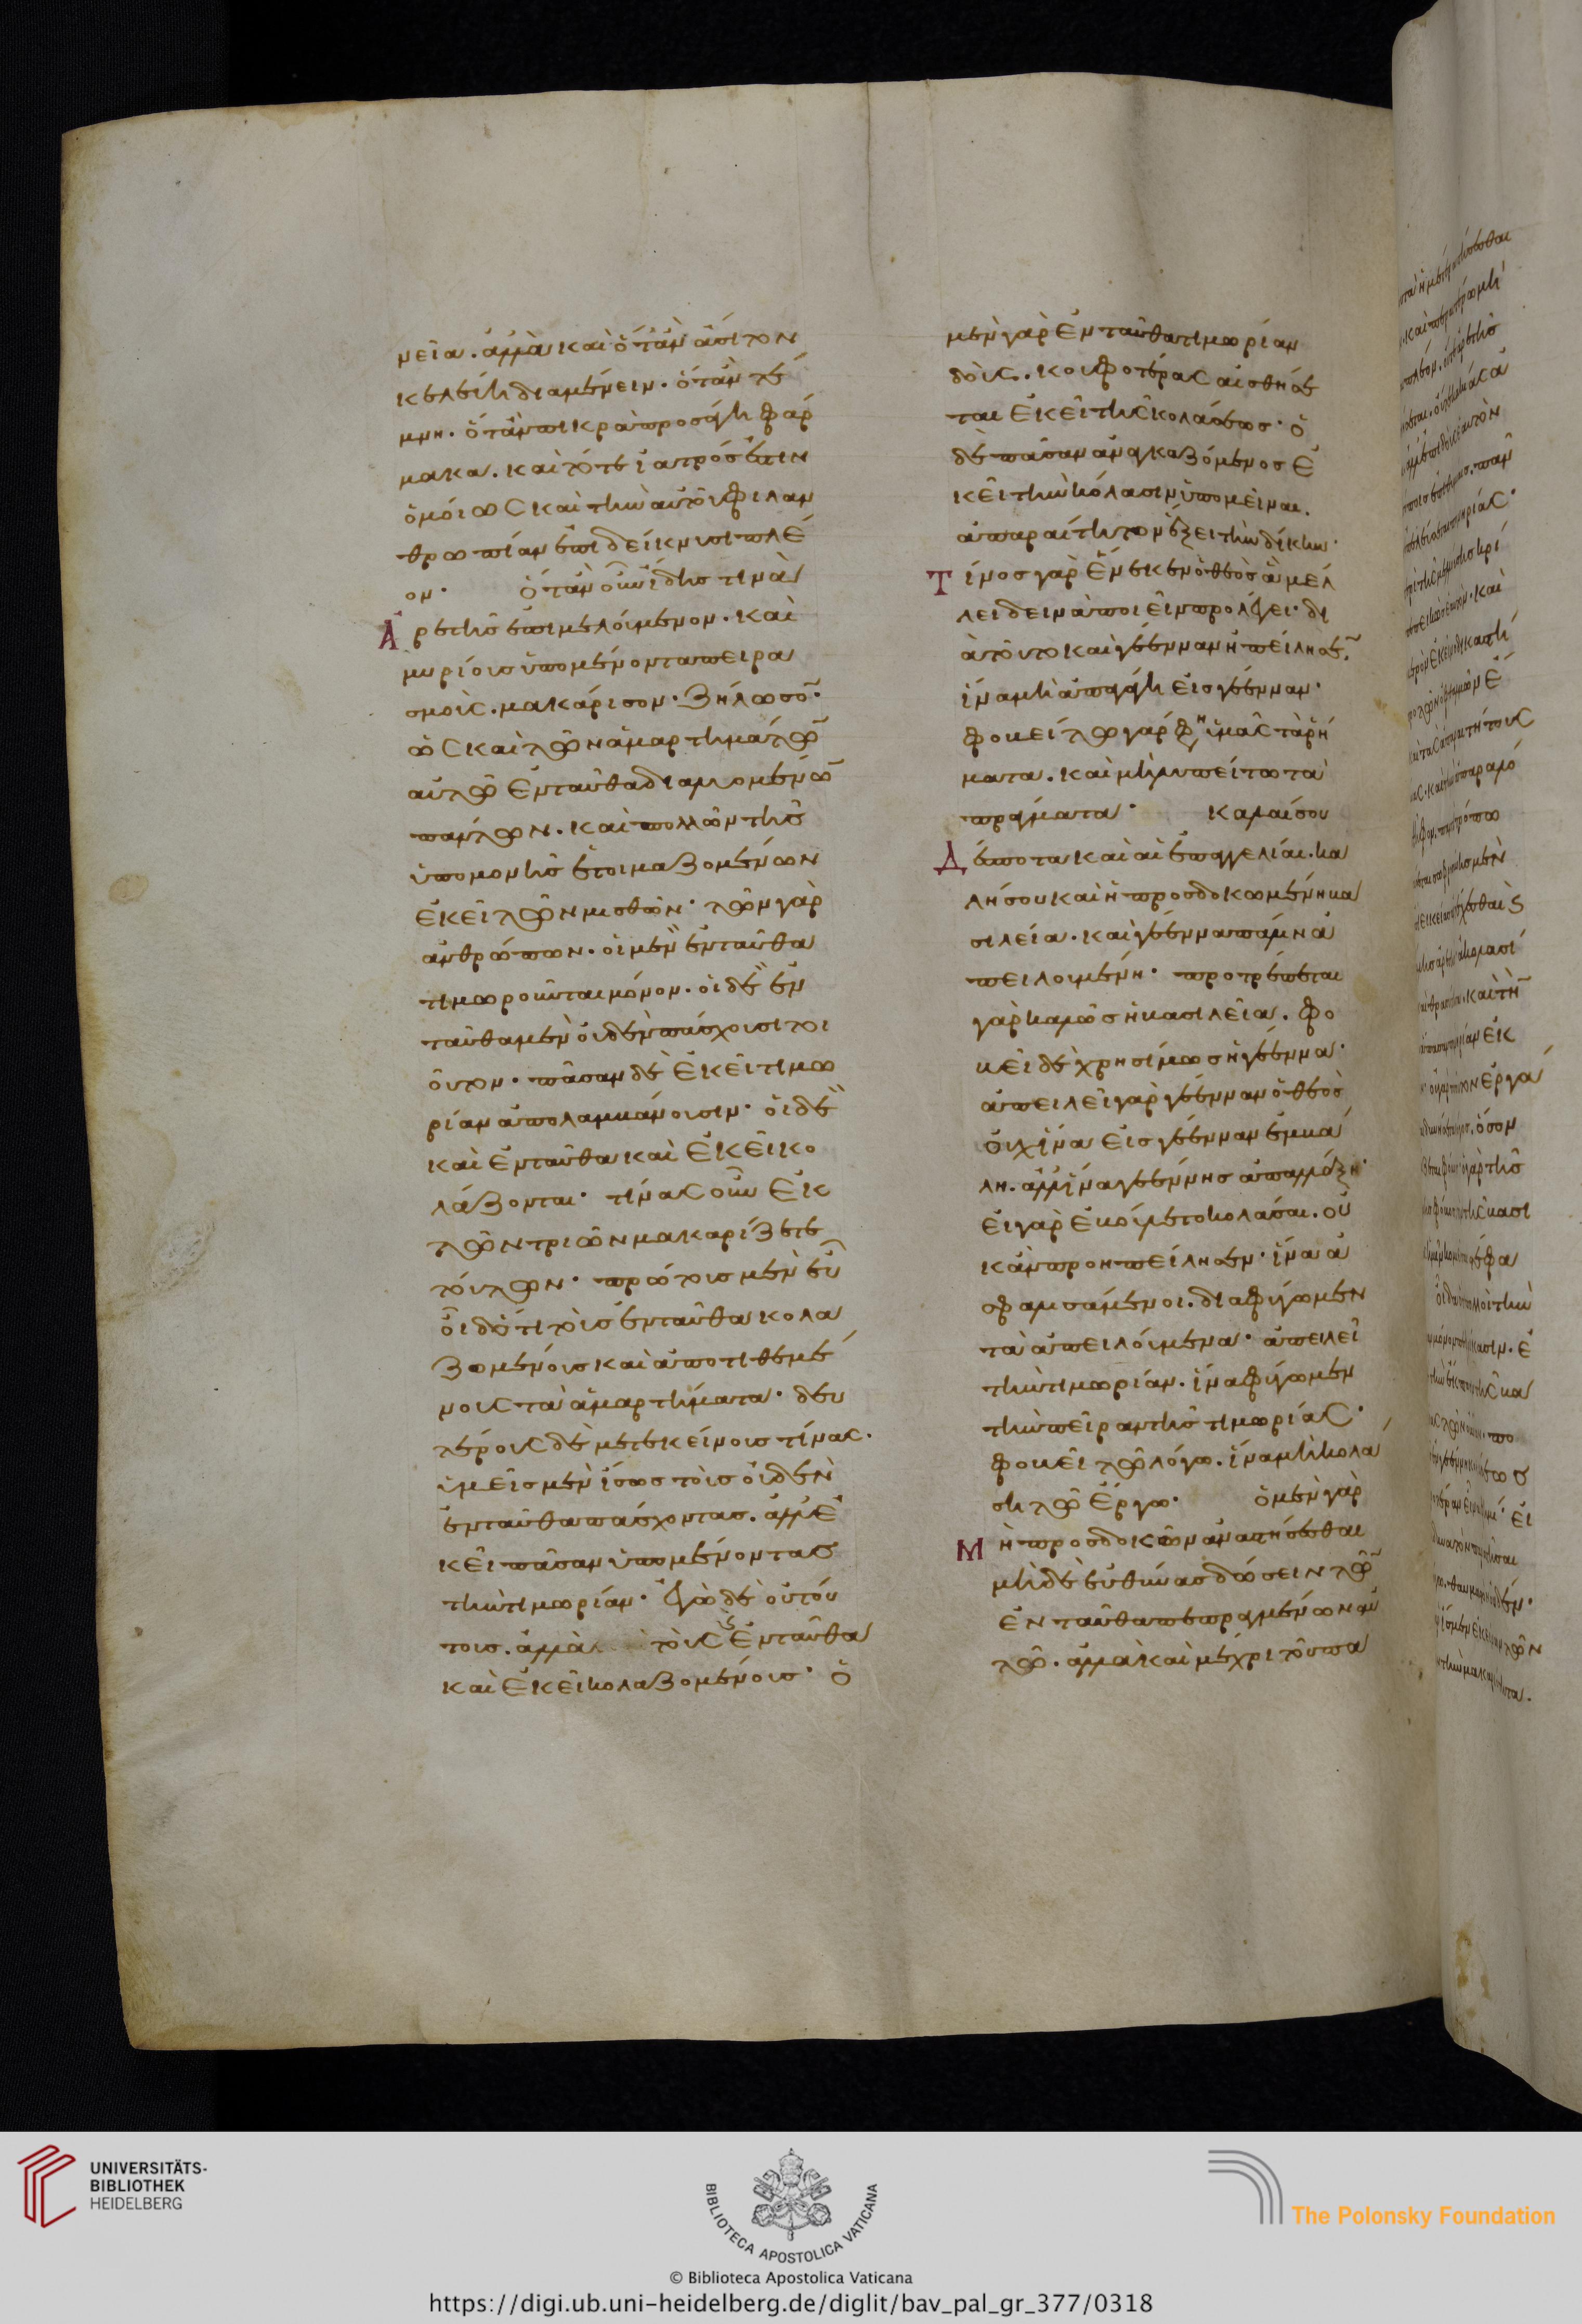 νεῖα. ἀλλὰ καὶ ὅταν ἄσιτον
κελεύη διαμένειν. ὅταν τέ
μνη. ὅταν πικρὰ προσάγη φάρ
μακα. καὶ τότε ἰατρός ἐστιν
ὁμοίως καὶ τὴν αὐτοῦ φιλαν
θρωπίαν ἐπιδείκνυσι πλέ
ον. ὅταν οὖν ἴδης τινὰ
ἀρετῆς ἐπιμελούμενον. καὶ
μυρίοις ὑπομένοντα πειρα
σμοῖς. μακάρισον. ζήλωσον.
ὡς καὶ τῶν ἁμαρτημάτων
αὐτῶ ἐνταῦθα διαλυομένων
πάντων. καὶ πολλῶν τῆς
ὑπομονῆς ἑτοιμαζομένων
ἐκεῖ τῶν μισθῶν. τῶν γὰρ
ἀνθρώπων. οἱ μὲν ἐνταῦθα
τιμωροῦνται μόνον. οἱ δὲ ἐν
ταῦθα μὲν οὐδὲν πάσχουσι τοι
οῦτον. πᾶσαν δὲ ἐκεῖ τιμω
ρίαν ἀπολαμβάνουσιν. οἱ δὲ
καὶ ἐνταῦθα καὶ ἐκεῖ κο
λάζονται. τίνας οὖν ἐκ
τῶν τριῶν μακαρίζετε
τούτων. πρώτους μὲν εὖ
οἶδ' ὅτι τοὺς ἐνταῦθα κολα
ζομένους καὶ ἀποτιθεμέ
νους τὰ ἁμαρτήματα. δευ
τέρους δὲ μετ' ἐκείνους τίνας.
ὑμεῖς μὲν ἴσως τοὺς οὐδὲν
ἐνταῦθα πάσχοντας. ἀλλ' ἐ
κεῖ πᾶσαν ὑπομένοντας
τὴν τιμωρίαν. ἐγὼ δὲ οὐ τού
τους. ἀλλὰ τοὺς ἐνταῦθα
καὶ ἐκεῖ κολαζομένους. ὁ
μὲν γὰρ ἐνταῦθα τιμωρίαν
δοὺς. κουφοτέρας αἰσθήσε
ται ἐκεῖ τῆς κολάσεως. ὁ
δὲ πᾶσαν ἀναγκαζόμενος ἐ
κεῖ τὴν κόλασιν ὑπομεῖναι.
ἀπαραίτητον ἕξει τὴν δίκην.
τίνος γὰρ ἕνεκεν ὁ θεὸς ἃ μέλ
λει δεινὰ ποιεῖν προλέγει. δι
ὰ τοῦτο καὶ γέενναν ἠπείλησεν.
ἵνα μὴ ἀπαγάγη εἰς γέενναν.
φοβείτω γὰρ φη ὑμᾶς τὰ ῥή
ματα. καὶ μὴ λυπείτω τὰ
πράγματα. καλαί σου
δέσποτα καὶ αἱ ἐπαγγελίαι. κα
λή σου καὶ ἡ προσδοκωμένη βα
σιλεία. καὶ γέεννα πάλιν ἀ
πειλουμένη. προτρέπεται
γὰρ καλῶς ἡ βασιλεία. φο
βεῖ δὲ χρησίμως ἡ γέεννα.
ἀπειλεῖ γὰρ γέενναν ὁ θεὸς
οὐχ ἵνα εἰς γέενναν ἐμβά
λη. ἀλλ' ἵνα γεέννης ἀπαλλάξη.
εἰ γὰρ ἐβούλετο κολάσαι. οὐ
κ ἂν προηπείλησεν. ἵνα ἀ
σφαλισάμενοι. διαφύγωμεν
τὰ ἀπειλούμενα. ἀπειλεῖ
τὴν τιμωρίαν. ἵνα φύγωμεν
τὴν πεῖραν τῆς τιμωρίας.
φοβεῖ τῶ λόγω. ἵνα μὴ κολά
ση τῶ ἔργω. ὁ μὲν γὰρ
μὴ προσδοκῶν ἀναστήσεσθαι
μηδὲ εὐθύνας δώσειν τῶν
ἐνταῦθα πεπραγμένων αὐ
τῶ. ἀλλὰ καὶ μέχρι τοῦ πα
UNIVERSITÄTS-
BIBLIOTHEK
HEIDELBERG
BIBLIOTECA APOSTOLICA VATICANA
The Polonsky Foundation
© Biblioteca Apostolica Vaticana
https://digi.ub.uni-heidelberg.de/diglit/bav_pal_gr_377/0318